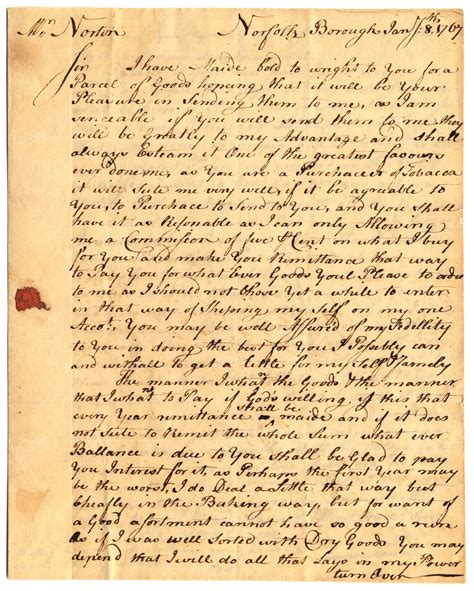 Mr. Norton Norfolk Borough Jany. 8th. 1767
Sir I have Maide bold to wright to You for a
Parcel of Goods hopeing that it will be Your
Pleasure in Sending them to me, as I am
senceable if You will send them to me they
will be Greatly to my Advantage and shall
always Esteam it One of the greatest favours
ever done me, as You are a Purchacer of Tobacca
it will Sute me very well, if it be agreable to
You, to Purchace to Send to You, and You shall
have it as Resonable as I can only Allowing
me a Commision of five # Cent on what I buy
for You and make You Remittance that way
to Pay You for what Ever Goods Youl Please to order
to me as I should not Chose Yet a while to enter
in that way of Shiping my Self on my one
Acco't, You may be well Assured of my Fidellity
to You in doing the best for You I Possibly can
and withall to get a little for my Self & famely
The manner I wha'nt the Goods & the manner
that I wha'nt to Pay if Gods willing, if this that
every Year remittance shall be maide and if it does
not Sute to Remit the whole Sum what ever
Ballance is due to You shall be Glad to pay
You Interest for it, as Perhaps the first Year may
be the worst, I do Deal a little that way but
Cheafly in the Baking way, but for want of
a Good asortment cannot have so good a run
as if I was well Sorted with Dry Goods You may
depend that I will do all that Lays in my Power
turn Over